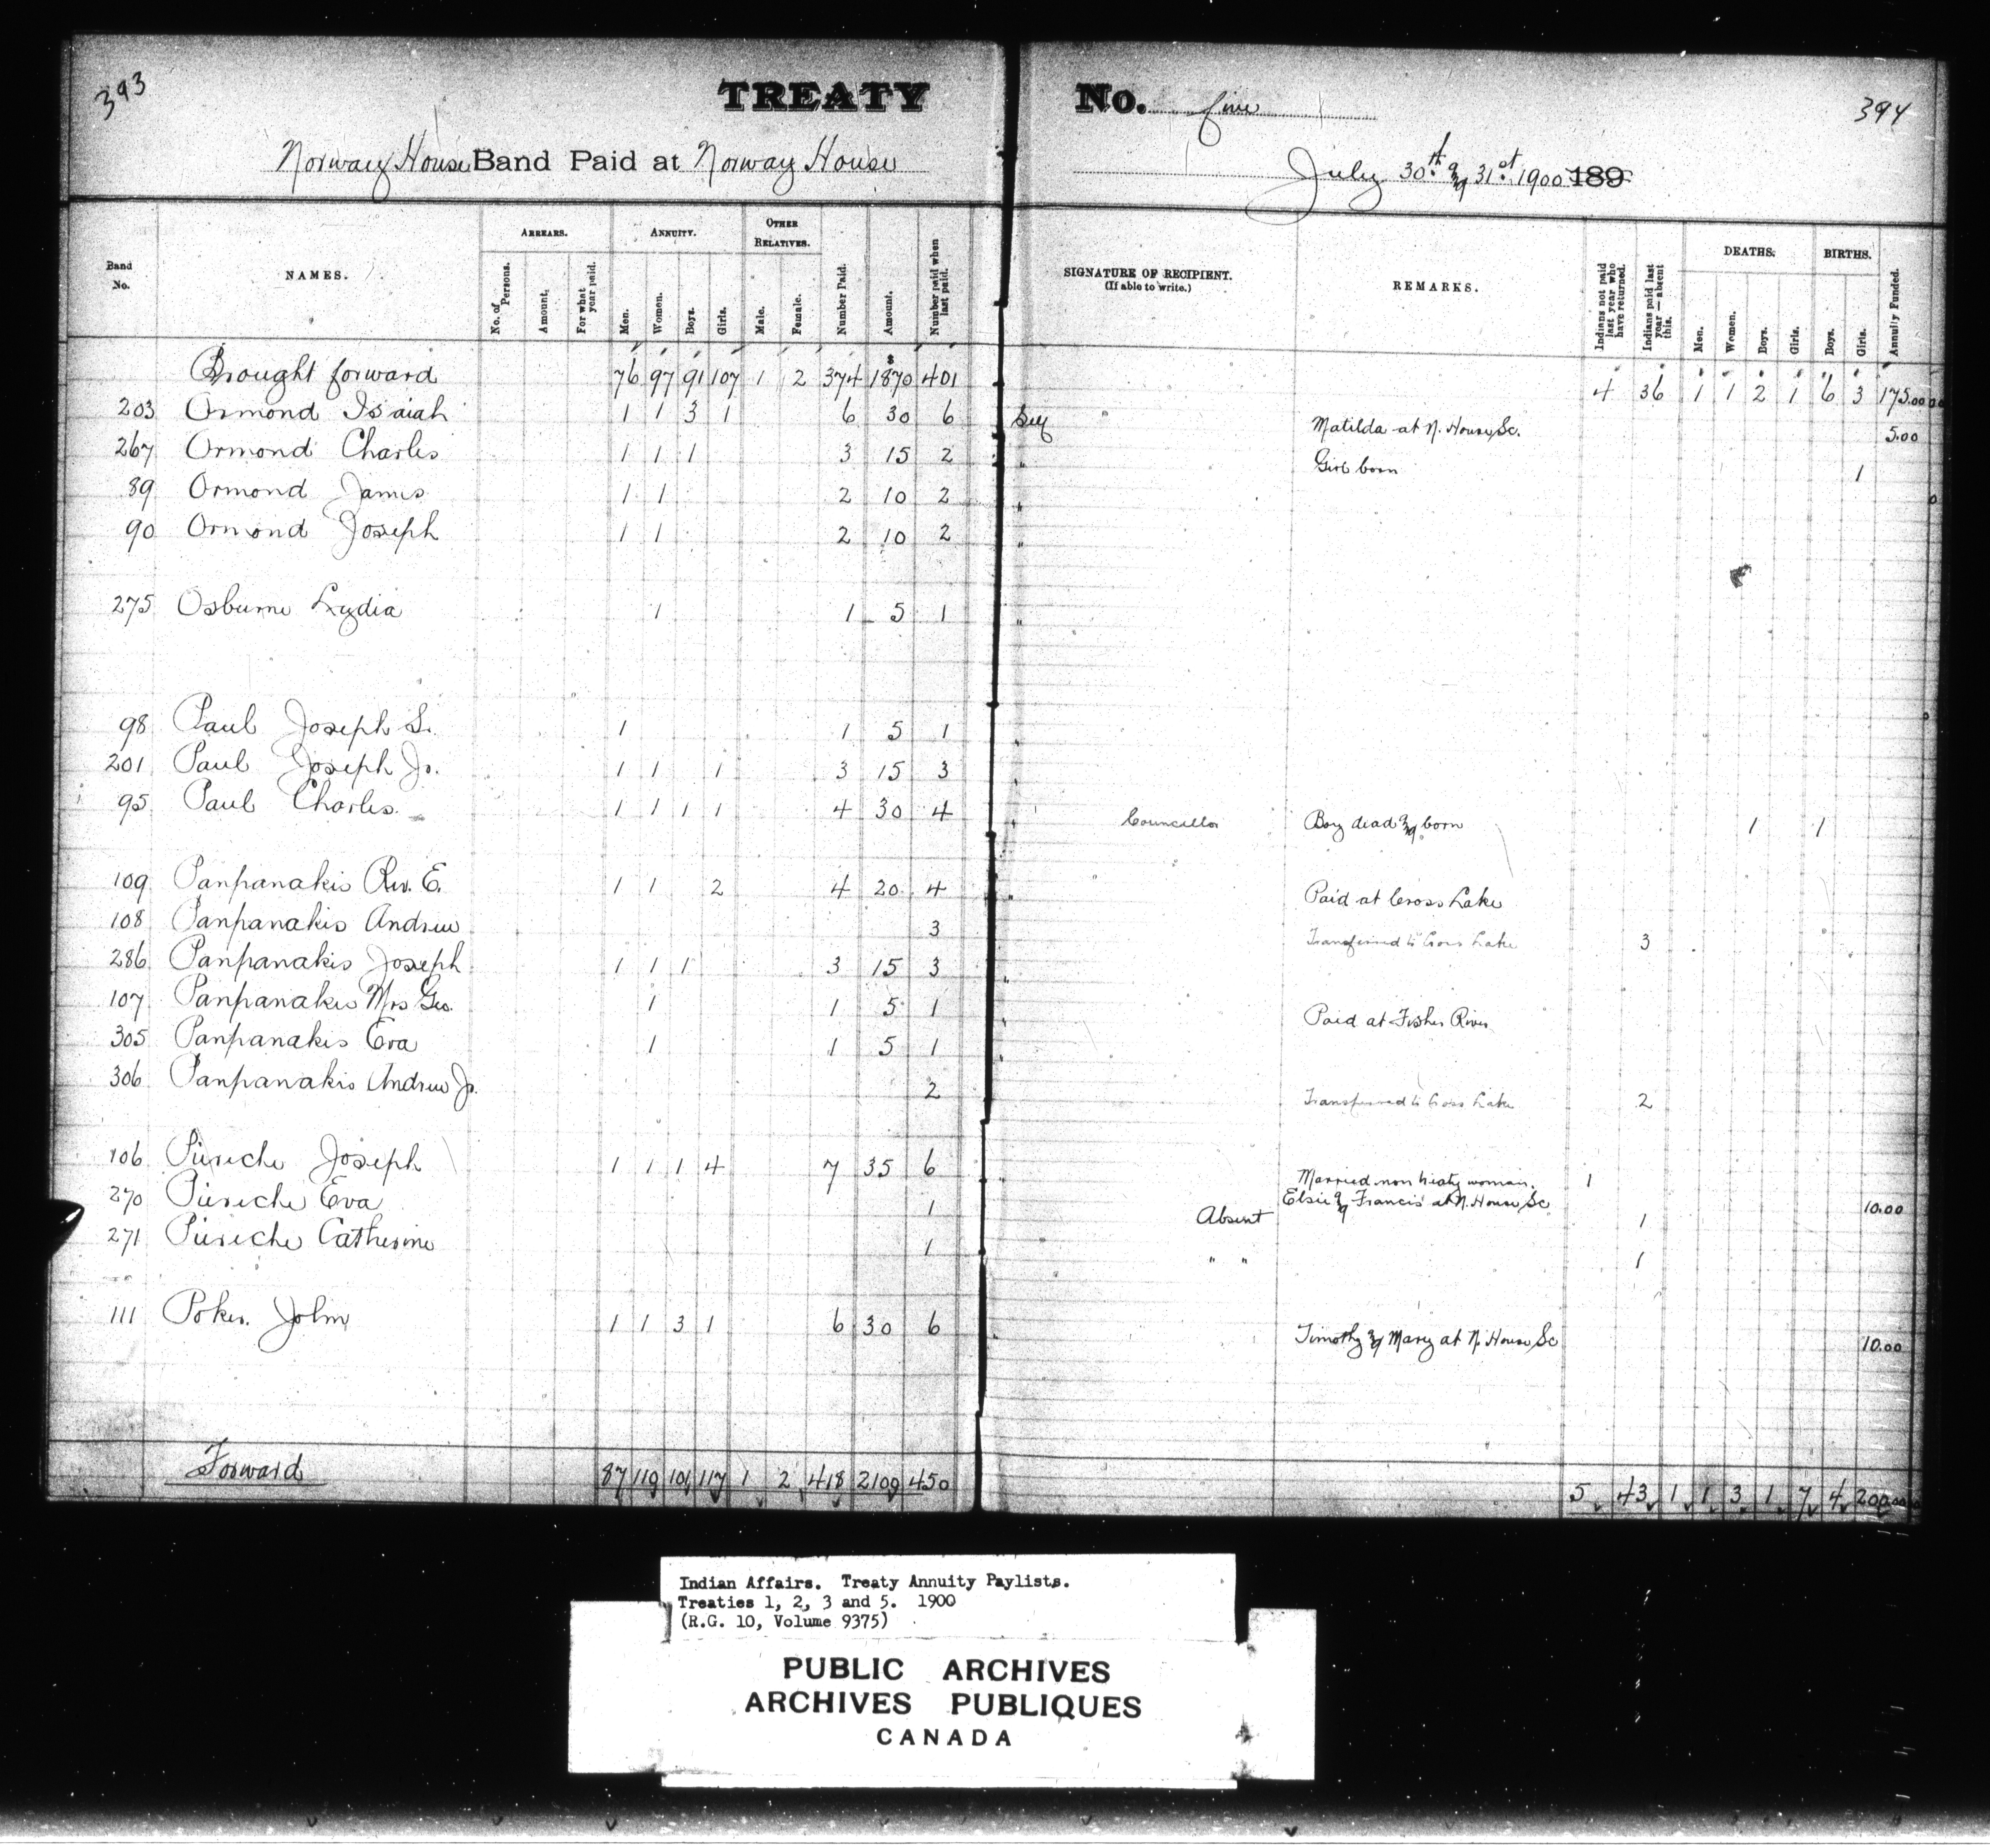 393
TREATY No. five
394
Norway House Band Paid at Norway House
July 30th & 31st 1900 189
Band No.
NAMES.
ARREARS.
No. of Persons.
Amount.
For what year paid.
ANNUITY.
Men.
Women.
Boys.
Girls.
OTHER RELATIVES.
Male.
Female.
Number Paid.
Amount.
Number paid when last paid.
SIGNATURE OF RECIPIENT.
(If able to write.)
REMARKS.
Indians not paid last year who have returned.
Indians paid last year—absent this.
DEATHS.
Men.
Women.
Boys.
Girls.
BIRTHS.
Boys.
Girls.
Annuity Funded.
Brought forward 76 97 91 107 1 2 374 $1870 401 4 36 1 1 2 1 6 3 175.00
203 Ormond Isaiah 1 1 3 1 6 30 6 Self Matilda at N. House Sc. 5.00
267 Ormond Charles 1 1 1 3 15 2 " Girl born 1
89 Ormond James 1 1 2 10 2 "
90 Ormond Joseph 1 1 2 10 2 "
275 Osburne Lydia 1 1 5 1 "
98 Paul Joseph S. 1 1 5 1 "
201 Paul Joseph Jr. 1 1 1 3 15 3 "
95 Paul Charles 1 1 1 1 4 30 4 " Councillor Boy dead & born 1 1
109 Panpanakis Rev. E. 1 1 2 4 20 4 " Paid at Cross Lake
108 Panpanakis Andrew 3 Transferred to Cross Lake 3
286 Panpanakis Joseph 1 1 1 3 15 3 "
107 Panpanakis Mrs Geo. 1 1 5 1 " Paid at Fisher River
305 Panpanakis Eva 1 1 5 1 "
306 Panpanakis Andrew Jr. 2 Transferred to Cross Lake 2
106 Puriche Joseph 1 1 1 4 7 35 6 Married non treaty woman. 1
Elsie & Francis at N. House Sc 10.00
270 Puriche Eva 1 Absent 1
271 Puriche Catherine 1 " " 1
111 Poker John 1 1 3 1 6 30 6 " Timothy & Mary at N. House Sc 10.00
Forward 87 110 101 117 1 2 418 2100 450 5 43 1 1 3 1 7 4 200.00
Indian Affairs. Treaty Annuity Paylists.
Treaties 1, 2, 3 and 5. 1900
(R.G. 10, Volume 9375)
PUBLIC ARCHIVES
ARCHIVES PUBLIQUES
CANADA